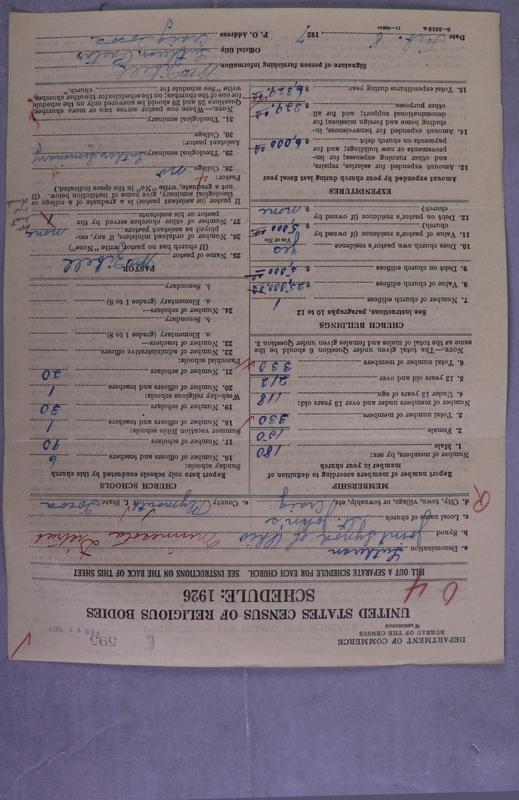 DEPARTMENT OF COMMERCE
BUREAU OF THE CENSUS
WASHINGTON
595
UNITED STATES CENSUS OF RELIGIOUS BODIES
SCHEDULE: 1926
04
FILL OUT A SEPARATE SCHEDULE FOR EACH CHURCH. SEE INSTRUCTIONS ON THE BACK OF THIS SHEET
a. Denomination Lutheran
b. Synod Joint Synod of Ohio Minnesota District
c. Local name of church St John's
d. City, town, village, or township, etc. Craig e. County Plymouth f. State Iowa
MEMBERSHIP
Report number of members according to definition of member in your church
Number of members, by sex:
1. Male 180
2. Female 150
3. Total number of members 330
Number of members under and over 13 years old:
4. Under 13 years of age 118
5. 13 years old and over 212
6. Total number of members 330
NOTE.—The total given under Question 6 should be the same as the total of males and females given under Question 3.
CHURCH BUILDINGS
See instructions, paragraphs 10 to 12
7. Number of church edifices 1
8. Value of church edifices $
9. Debt on church edifices $
10. Does church own pastor's residence yes
Yes or No
11. Value of pastor's residence (if owned by church) $ 5000
12. Debt on pastor's residence (if owned by church) $ none
EXPENDITURES
Amount expended by your church during last fiscal year
13. Amount expended for salaries, repairs, and other running expenses; for improvements or new building; and for payments on church debt $
14. Amount expended for benevolence, including home and foreign missions; for denominational support; and for all other purpose $
15. Total expenditures during year $
CHURCH SCHOOLS
Report here only schools conducted by this church
Sunday schools:
16. Number of officers and teachers 6
17. Number of scholars 40
Summer vacation Bible schools:
18. Number of officers and teachers 1
19. Number of scholars 30
Week-day religious schools:
20. Number of officers and teachers 1
21. Number of scholars 20
Parochial schools:
22. Number of administrative officers
23. Number of teachers—
a. Elementary (grades 1 to 8)
b. Secondary
24. Number of scholars—
a. Elementary (grades 1 to 8)
b. Secondary
PASTOR
25. Name of pastor
(If church has no pastor write "None")
26. Number of ordained ministers, if any, employed as assistant pastors none
27. Number of other churches served by the pastor or his assistants
If pastor (or assistant pastor) is a graduate of a college or theological seminary, give name of institution below. (If not a graduate, write "No" in the space indicated.)
Pastor:
28. College no
29. Theological seminary Luther Seminary
Assistant pastor:
30. College
31. Theological seminary
NOTE.—Where one pastor serves two or more churches, Questions 28 and 29 should be answered only on the schedule for one of the churches; on the schedule for the other churches, write "See Schedule for church."
Signature of person furnishing information
Official title Lutheran Pastor
P. O. Address Craig Iowa
Date Feb. 8, 1927